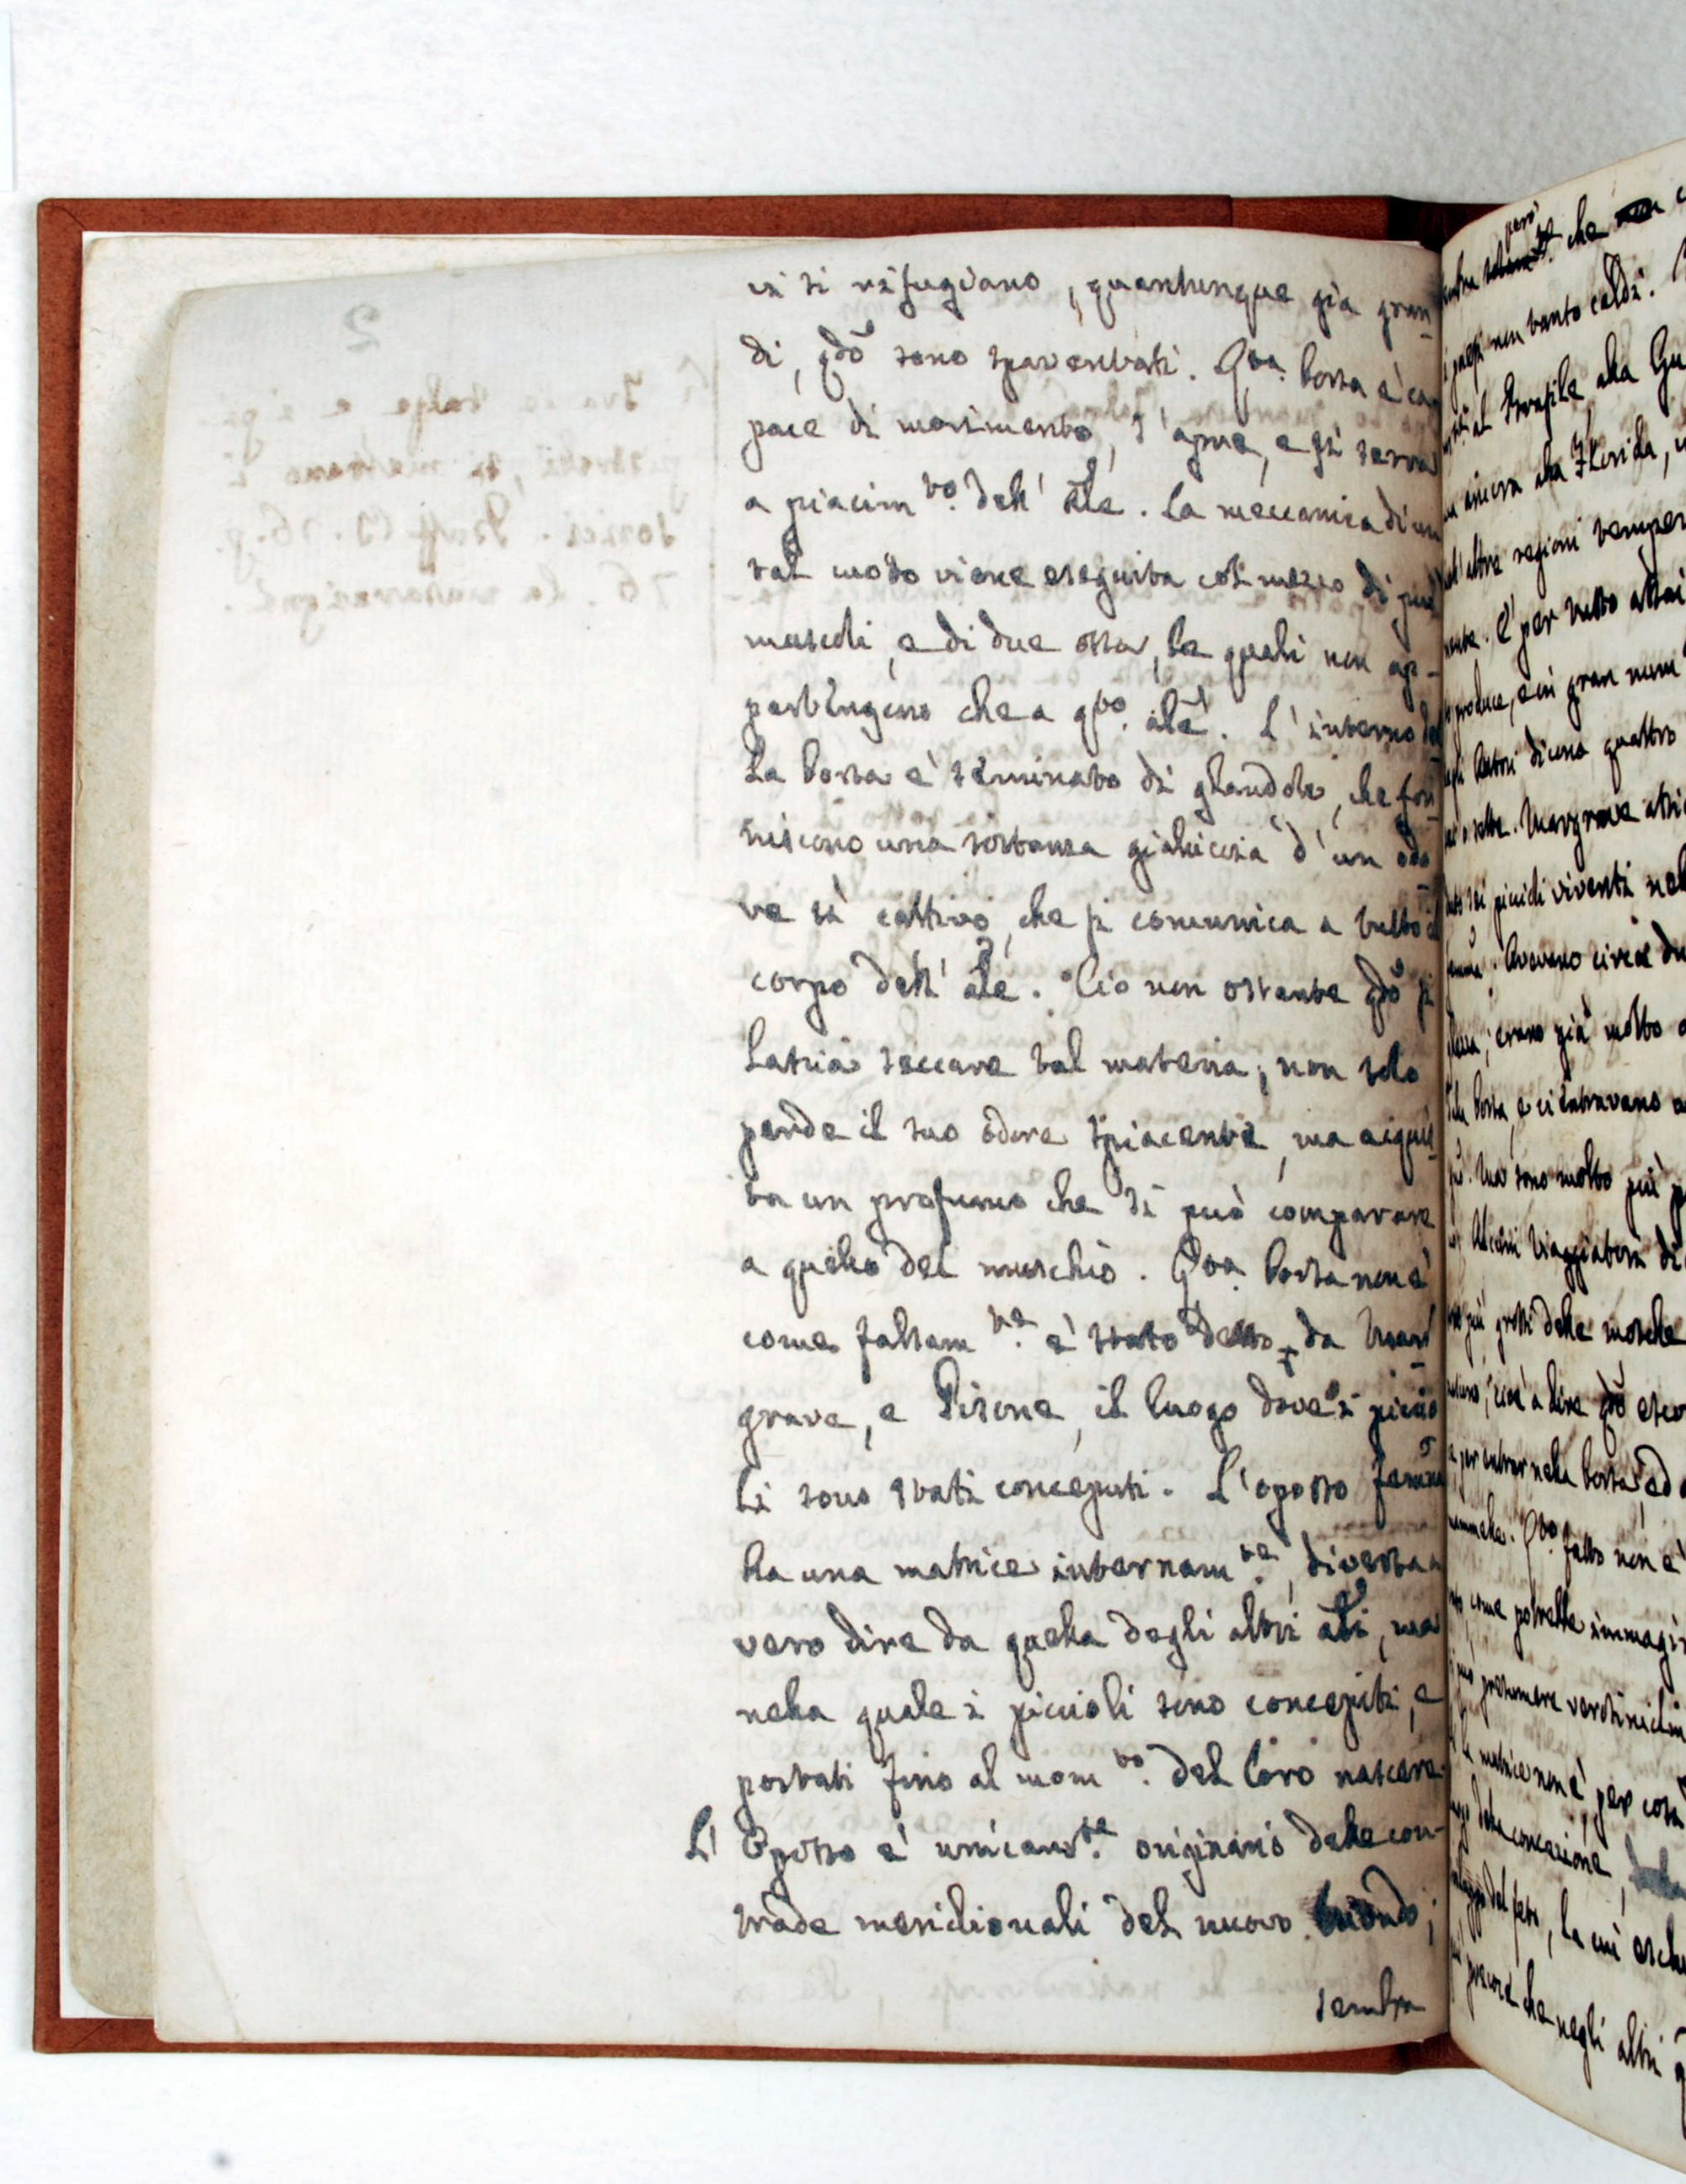 vi si rifugiano, quantunque già gran-
di, qdō sono spaventati. Qta. borsa è ca-
pace di movimento, s'apre, e si serra
a piacim.to dell' ãle. La meccanica di un
tal modo viene eseguita col mezzo di più
muscoli, e di due ossa, le quali non ap-
partengono che a qto. ãle. L'interno del
la borsa è seminato di glandole, che for
niscono una sostanza gialliccia d'un odo
re sì cattivo, che si comunica a tutto il
corpo dell' ãle. Ciò non ostante qdō si
lascia seccare tal materia, non solo
perde il suo odore spiacente, ma acquis
ta un profumo che si può comparare
a quello del muschio. Qta. borsa non è
come falsam.te è stato detto da Mar
grave, e Pisone, il luogo dove i piccio
li sono stati concepiti. L'oposso femin
ha una matrice internam.te, diversa a
vero dire da quella degli altri ãli, ma
nella quale i piccioli sono concepiti, e
portati fino al mom.to del loro nascere.
L' Oposso è unicam.te originario delle con-
trade meridionali del nuovo mondo;
sembra
però
che
paesi non tanto caldi.
al Brasile alla Gu
ancora alla Florida,
altre regioni temper
È per tutto assai
produce, e in gran num
Autori dicono quattro
o sette. Margrave
sei piccioli viventi nel
Avevano circa du
erano già molto
borsa, e ci entravano
Ma sono molto più p
Alcuni Viaggiatori di
più grossi delle mosche
cioè a dire qdō esco
per entrar nella borsa, ed
Qto. fatto non è
come potrebbe immagi
presumere
la matrice non è, per così
della concezione,
del feto, la cui
che negli altri